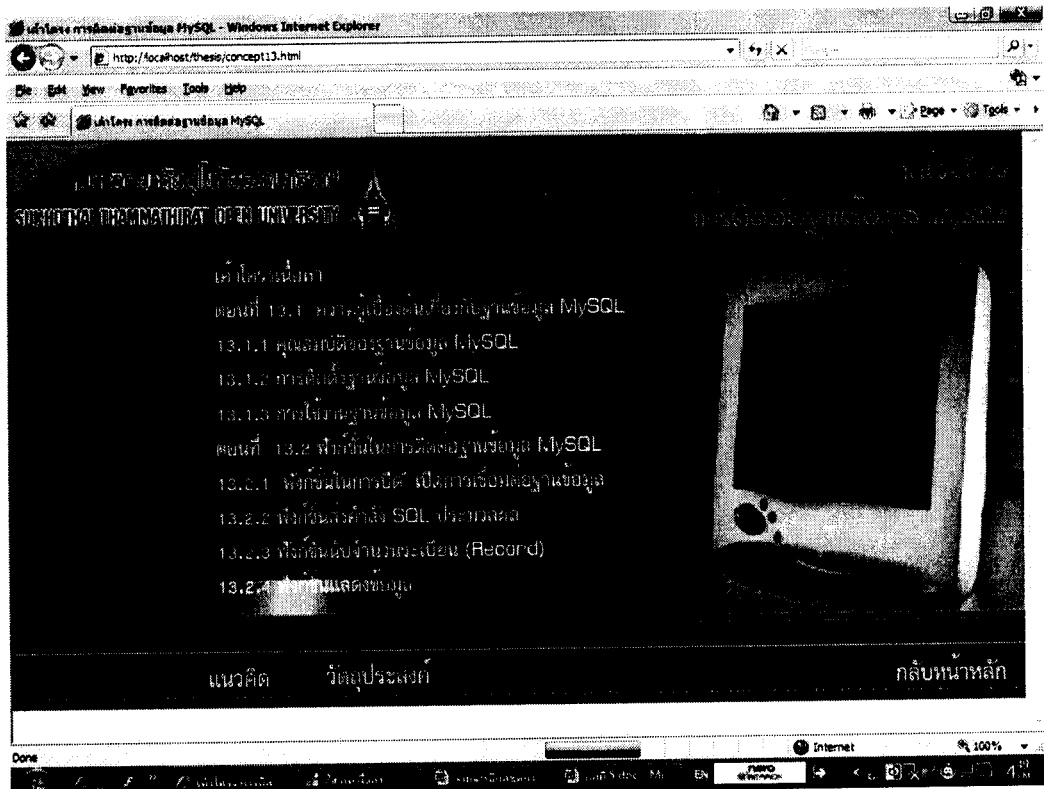 เค้าโครง การติดต่อฐานข้อมูล MySQL - Windows Internet Explorer
http://localhost/thesis/concept13.html
File Edit View Favorites Tools Help
เค้าโครง การติดต่อฐานข้อมูล MySQL
Page Tools
มหาวิทยาลัยสุโขทัยธรรมาธิราช
SUKHOTHAI THAMMATHIRAT OPEN UNIVERSITY
เค้าโครงเนื้อหา
ตอนที่ 13.1 ความรู้เบื้องต้นเกี่ยวกับฐานข้อมูล MySQL
13.1.1 คุณสมบัติของฐานข้อมูล MySQL
13.1.2 การติดตั้งฐานข้อมูล MySQL
13.1.3 การใช้งานฐานข้อมูล MySQL
ตอนที่ 13.2 ฟังก์ชันในการติดต่อฐานข้อมูล MySQL
13.2.1 ฟังก์ชันในการปิด เปิดการเชื่อมต่อฐานข้อมูล
13.2.2 ฟังก์ชันส่งคำสั่ง SQL ประมวลผล
13.2.3 ฟังก์ชันนับจำนวนระเบียน (Record)
13.2.4 ฟังก์ชันแสดงข้อมูล
แนวคิด วัตถุประสงค์ กลับหน้าหลัก
Done Internet 100%
EN